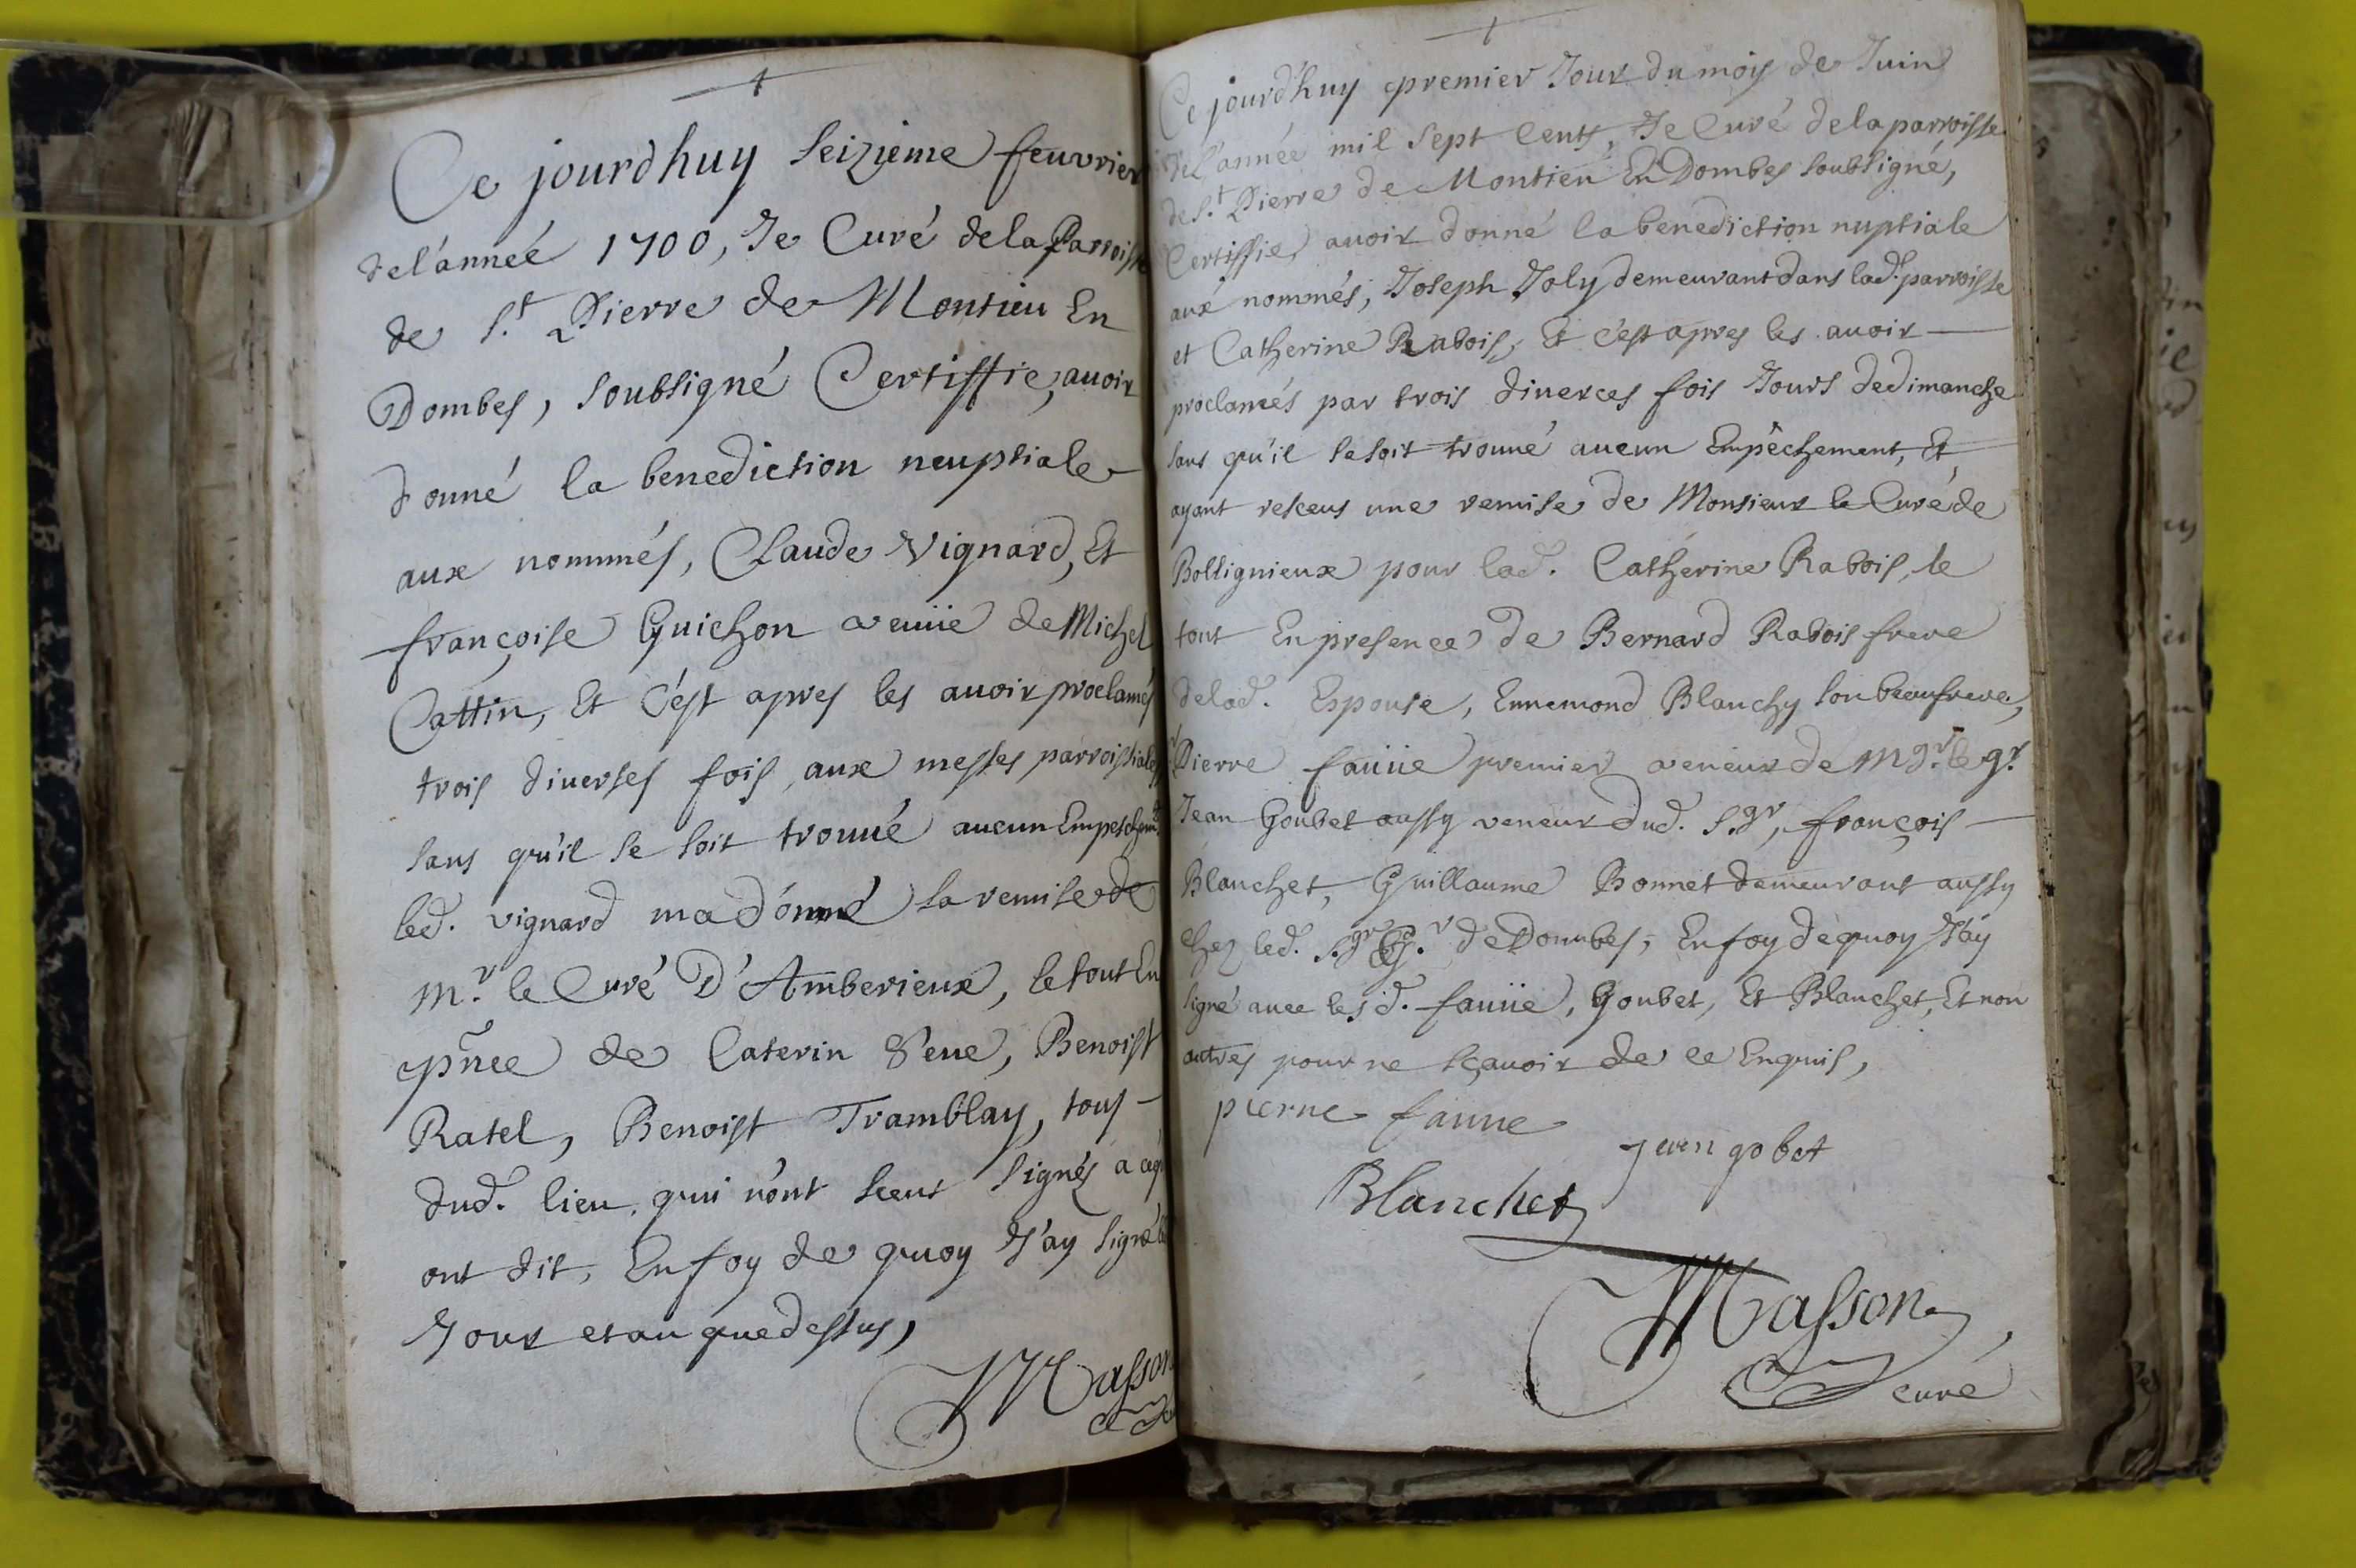 Ce jourdhuy seizieme feuvrier
de l'année 1700, Je Curé de la Parroisse
de S.t Pierre de Montieu En
Dombes, soubsigné Certiffie, auoir
donné la benediction neuptiale
aux nommés, Claude Vignard, Et
françoise Guichon veuüe de Michel
Cattin, Et c'est apres les auoir proclamés
trois diuerses fois, aux messes parroissiales
sans qu'il se soit trouué aucun Empeschem.t
led. vignard m'a donné la remise de
M.r le Curé D'Amberieux, le tout En
pñce de Caterin Seue, Benoist
Ratel, Benoist Tramblay, tous
dud. lieu, qui n'ont sceus signés a ce qu
ont dit, En foy de quoy J'ay signé les
Jour et an que dessus,
Masson
Ce jourd'huy premier Jour du moys de Juin
de l'année mil sept Cents, Je Curé de la parroisse
de S.t Pierre de Montieu En Dombes soubsigné,
Certiffie auoir donné la benediction nuptiale
aux nommés, Joseph Joly demeurant dans lad. parroisse
et Catherine Rabois, Et c'est apres les auoir
proclamés par trois diuerces fois Jours de dimanche
sans qu'il se soit trouué aucun Empêchement, Et
ayant resceus une remise de Monsieur le Curé de
Bollignieux pour lad. Catherine Rabois, le
tout En presence de Bernard Rabois frere
de lad. Espouse, Ennemond Blanchy son beaufrere,
Pierre fauüe premier veneur de Mgr. le gr
Jean Goubet aussy veneur dud. S.gr, françois
Blanchet, Guillaume Bonnet demeurant aussy
chez led. S.gr de Dombes, En foy de quoy J'ay
signé auec les d. fauüe, Goubet, Et Blanchet, Et non
autres pour ne sçauoir de ce Enquis,
pierre fauue
Jean gobet
Blanchet
Masson
curé